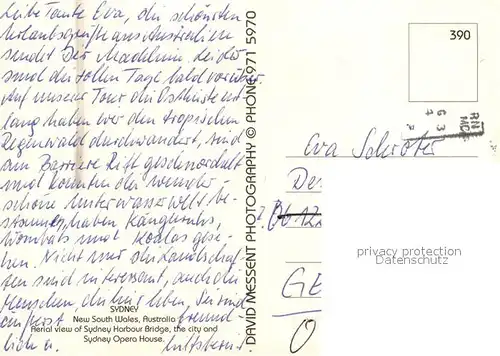 Liebe Tante Eva, die schönsten
Urlaubsgrüße aus Australien
sendet Dir Madeleine, leider
sind die tollen Tage bald vorüber.
Auf unserer Tour die Ostküste ent-
lang haben wir den tropischen
Regenwald durchwandert, sind
am Barriere Riff geschnorchelt
und konnten die wunder-
schöne Unterwasserwelt be-
staunen, haben Kängeruhs,
Wombats und Koalas gese-
hen. Nicht nur die Landschaf-
ten sind interessant, auch die
Menschen, die hier leben, sie sind
äußerst freund-
lich u. hilfsbereit.
SYDNEY
New South Wales, Australia
Aerial view of Sydney Harbour Bridge, the city and
Sydney Opera House.
DAVID MESSENT PHOTOGRAPHY © PHONE 971 5970
390
Eva Schröter
De
GE
O
privacy protection
Datenschutz